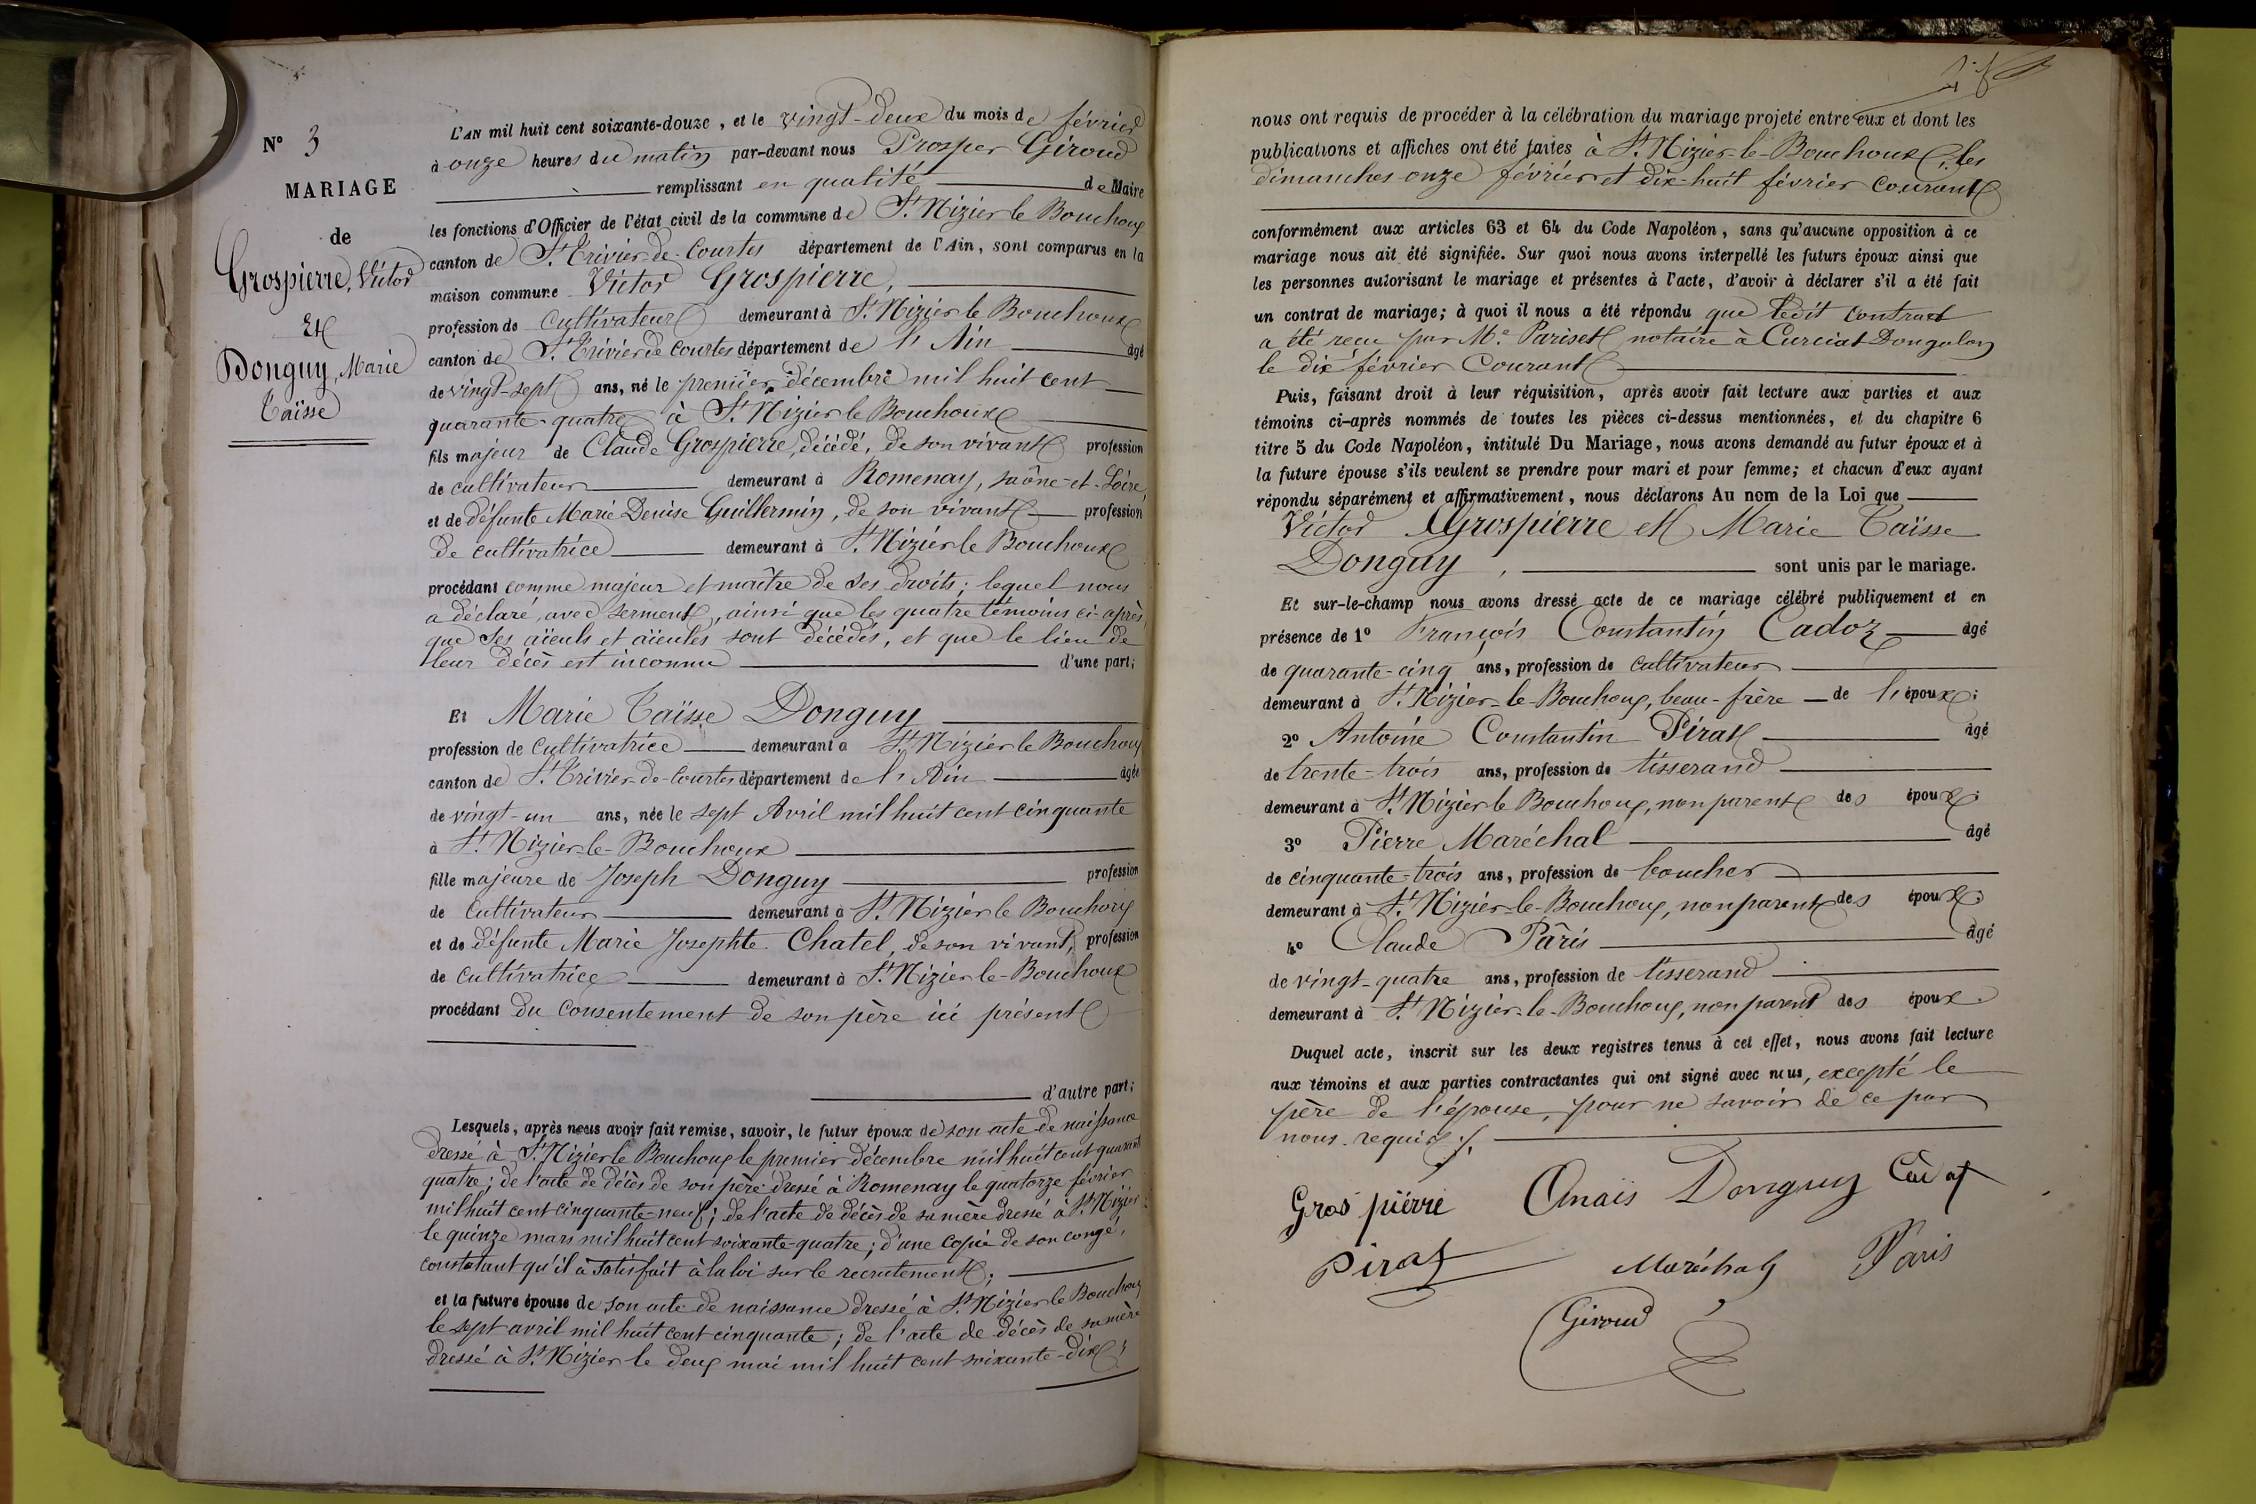 N° 3
MARIAGE
de
Grospierre, Victor
Et
Donguy, Marie
Taïsse
L'AN mil huit cent soixante-douze, et le vingt-deux du mois de février
à onze heures du matin par-devant nous Prosper Giroud
remplissant en qualité de Maire
les fonctions d'Officier de l'état civil de la commune de St Nizier le Bouchoux
canton de St Trivier de Courtes département de l'Ain, sont comparus en la
maison commune Victor Grospierre,
profession de cultivateur demeurant à St Nizier le Bouchoux
canton de St Trivier de Courtes département de l'Ain âgé
de vingt-sept ans, né le premier décembre mil huit cent
quarante quatre à St Nizier le Bouchoux
fils majeur de Claude Grospierre, décédé, de son vivant profession
de cultivateur demeurant à Romenay, saône-et-Loire,
et de défunte Marie Denise Guillermin, de son vivant profession
de cultivatrice demeurant à St Nizier le Bouchoux
procédant comme majeur et maître de ses droits; lequel nous
a déclaré, avec serment, ainsi que les quatre témoins ci-après,
que ses aïeuls et aïeules sont décédés, et que le lieu de
leur décès est inconnu d'une part;
Et Marie Taïsse Donguy
profession de Cultivatrice demeurant à St Nizier le Bouchoux
canton de St Trivier-de-Courtes département de l'Ain âgée
de vingt-un ans, née le sept Avril mil huit cent cinquante
à St Nizier-le-Bouchoux
fille majeure de Joseph Donguy profession
de Cultivateur demeurant à St Nizier le Bouchoux
et de défunte Marie Josephte Chatel, de son vivant, profession
de cultivatrice demeurant à St Nizier-le-Bouchoux
procédant du consentement de son père ici présent
d'autre part;
Lesquels, après nous avoir fait remise, savoir, le futur époux de son acte de naissance
dressé à St Nizier le Bouchoux le premier décembre mil huit cent quarante
quatre; de l'acte de décès de son père dressé à Romenay le quatorze février
mil huit cent cinquante-neuf; de l'acte de décès de sa mère dressé à St Nizier
le quinze mars mil huit cent soixante-quatre; d'une copie de son congé,
constatant qu'il à satisfait à la loi sur le recrutement;
et la future épouse de son acte de naissance dressé à St Nizier le Bouchoux
le sept avril mil huit cent cinquante; de l'acte de décès de sa mère
dressé à St Nizier le deux mai mil huit cent soixante-dix;
nous ont requis de procéder à la célébration du mariage projeté entre eux et dont les
publications et affiches ont été faites à St Nizier-le-Bouchoux, les
dimanches onze février et dix-huit février courant
conformément aux articles 63 et 64 du Code Napoléon, sans qu'aucune opposition à ce
mariage nous ait été signifiée. Sur quoi nous avons interpellé les futurs époux ainsi que
les personnes autorisant le mariage et présentes à l'acte, d'avoir à déclarer s'il a été fait
un contrat de mariage; à quoi il nous a été répondu que ledit contrat
a été reçu par Me Pariset notaire à Curciat Dongalon
le dix février Courant
Puis, faisant droit à leur réquisition, après avoir fait lecture aux parties et aux
témoins ci-après nommés de toutes les pièces ci-dessus mentionnées, et du chapitre 6
titre 5 du Code Napoléon, intitulé Du Mariage, nous avons demandé au futur époux et à
la future épouse s'ils veulent se prendre pour mari et pour femme; et chacun d'eux ayant
répondu séparément et affirmativement, nous déclarons Au nom de la Loi que
Victor Grospierre et Marie Taïsse
Donguy, sont unis par le mariage.
Et sur-le-champ nous avons dressé acte de ce mariage célébré publiquement et en
présence de 1° François Constantin Cadoz âgé
de quarante-cinq ans, profession de cultivateur
demeurant à St Nizier-le-Bouchoux, beau-frère de l'époux;
2° Antoine Constantin Pirat âgé
de trente-trois ans, profession de tisserand
demeurant à St Nizier le Bouchoux, non parent des époux;
3° Pierre Maréchal âgé
de cinquante-trois ans, profession de boucher
demeurant à St Nizier-le-Bouchoux, non parent des époux;
4° Claude Pâris âgé
de vingt-quatre ans, profession de tisserand
demeurant à St Nizier-le-Bouchoux, non parent des époux.
Duquel acte, inscrit sur les deux registres tenus à cet effet, nous avons fait lecture
aux témoins et aux parties contractantes qui ont signé avec nous, excepté le
père de l'épouse, pour ne savoir de ce par
nous requis ./.
Gros pierre Anaïs Donguy
Pirat Maréchal Pâris
Giroud